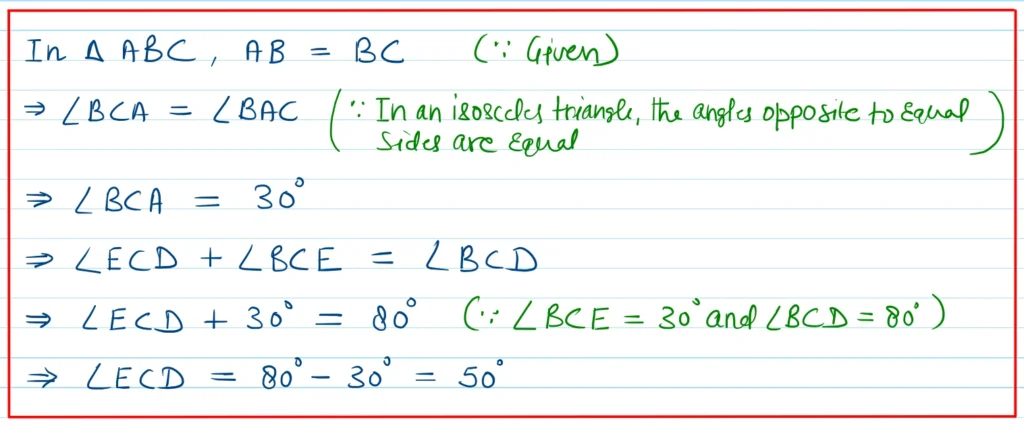 In Δ ABC, AB = BC (∵ Given)
⇒ ∠BCA = ∠BAC (∵ In an isosceles triangle, the angles opposite to equal
sides are equal)
⇒ ∠BCA = 30°
⇒ ∠ECD + ∠BCE = ∠BCD
⇒ ∠ECD + 30° = 80° (∵ ∠BCE = 30° and ∠BCD = 80°)
⇒ ∠ECD = 80° - 30° = 50°